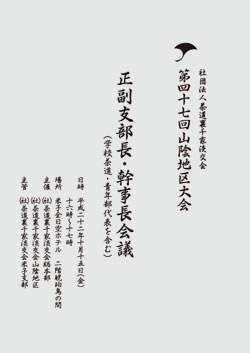 社団法人茶道裏千家淡交会
第四十七回山陰地区大会
正副支部長・幹事長会議
(学校茶道・青年部代表を含む)
日時 平成二十二年十月十五日(金)
十六時〜十七時
場所 米子全日空ホテル 二階飛鳥の間
主催 (社)茶道裏千家淡交会総本部
(社)茶道裏千家淡交会山陰地区
主管 (社)茶道裏千家淡交会米子支部